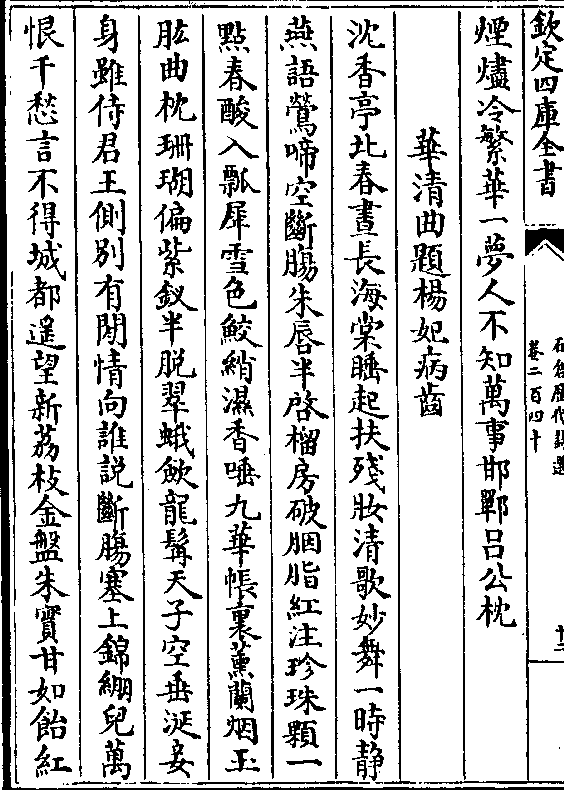 欽定四庫全書
卷二百四十
煙燼冷繁華一夢人不知萬事邯鄲呂公枕
華清曲題楊妃病齒
沈香亭北春晝長海棠睡起扶殘妝清歌妙舞一時静
燕語鶯啼空斷腸朱唇半啓榴房破胭脂紅注珍珠顆一
點春酸入瓢犀雪色鮫綃濕香唾九華帳裏薰蘭烟玉
肱曲枕珊瑚偏紫釵半脱翠蛾斂龍髯天子空垂涎妾
身雖侍君王側别有閒情向誰説斷腸塞上錦綳兒萬
恨千愁言不得城都遥望新荔枝金盤朱實甘如飴紅